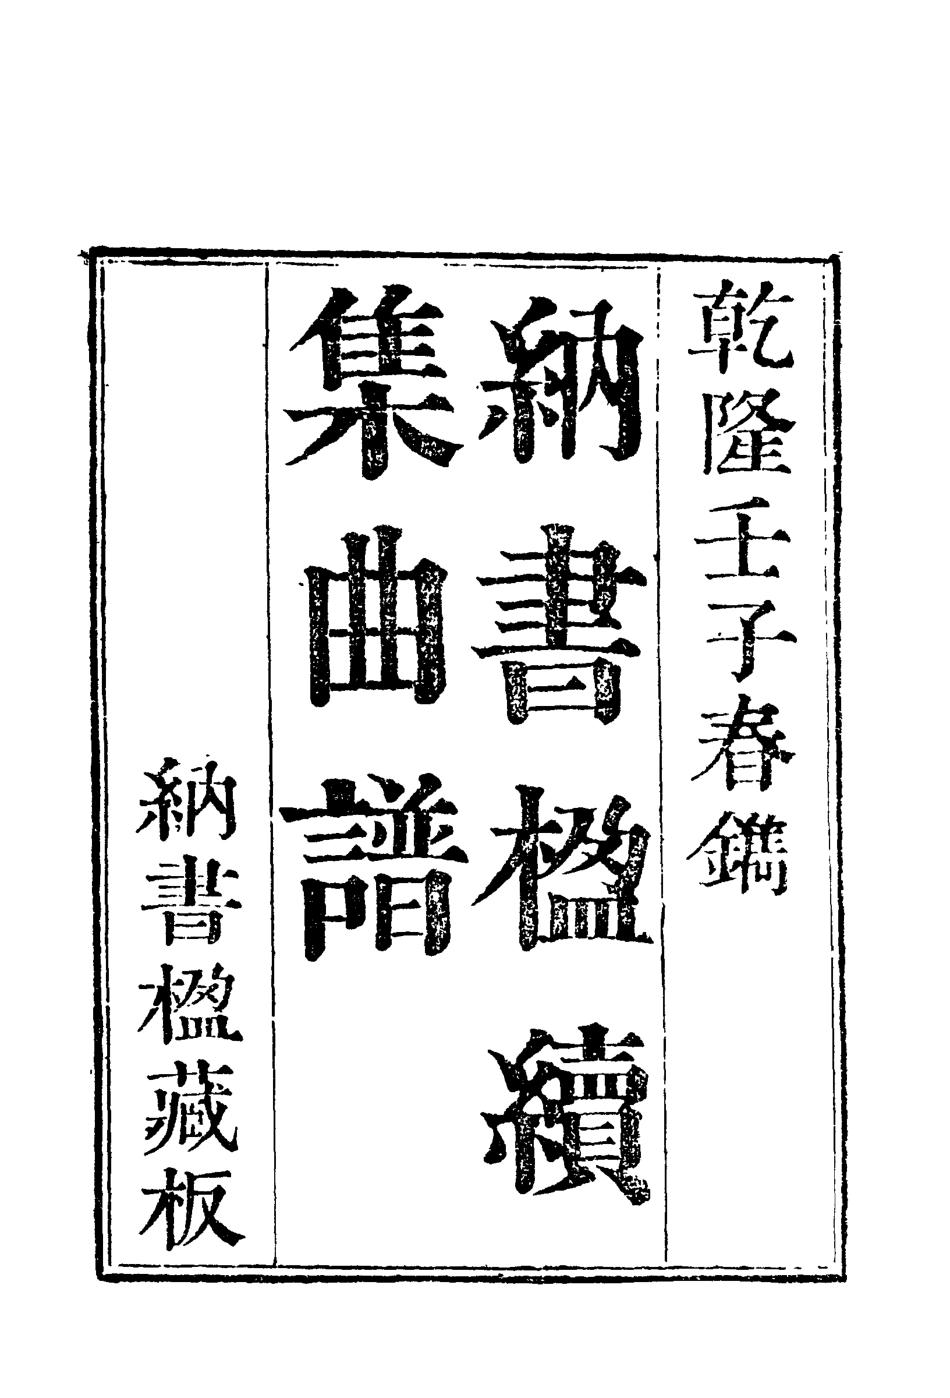 乾隆壬子春鐫
納書楹續
集曲譜
納書楹藏板